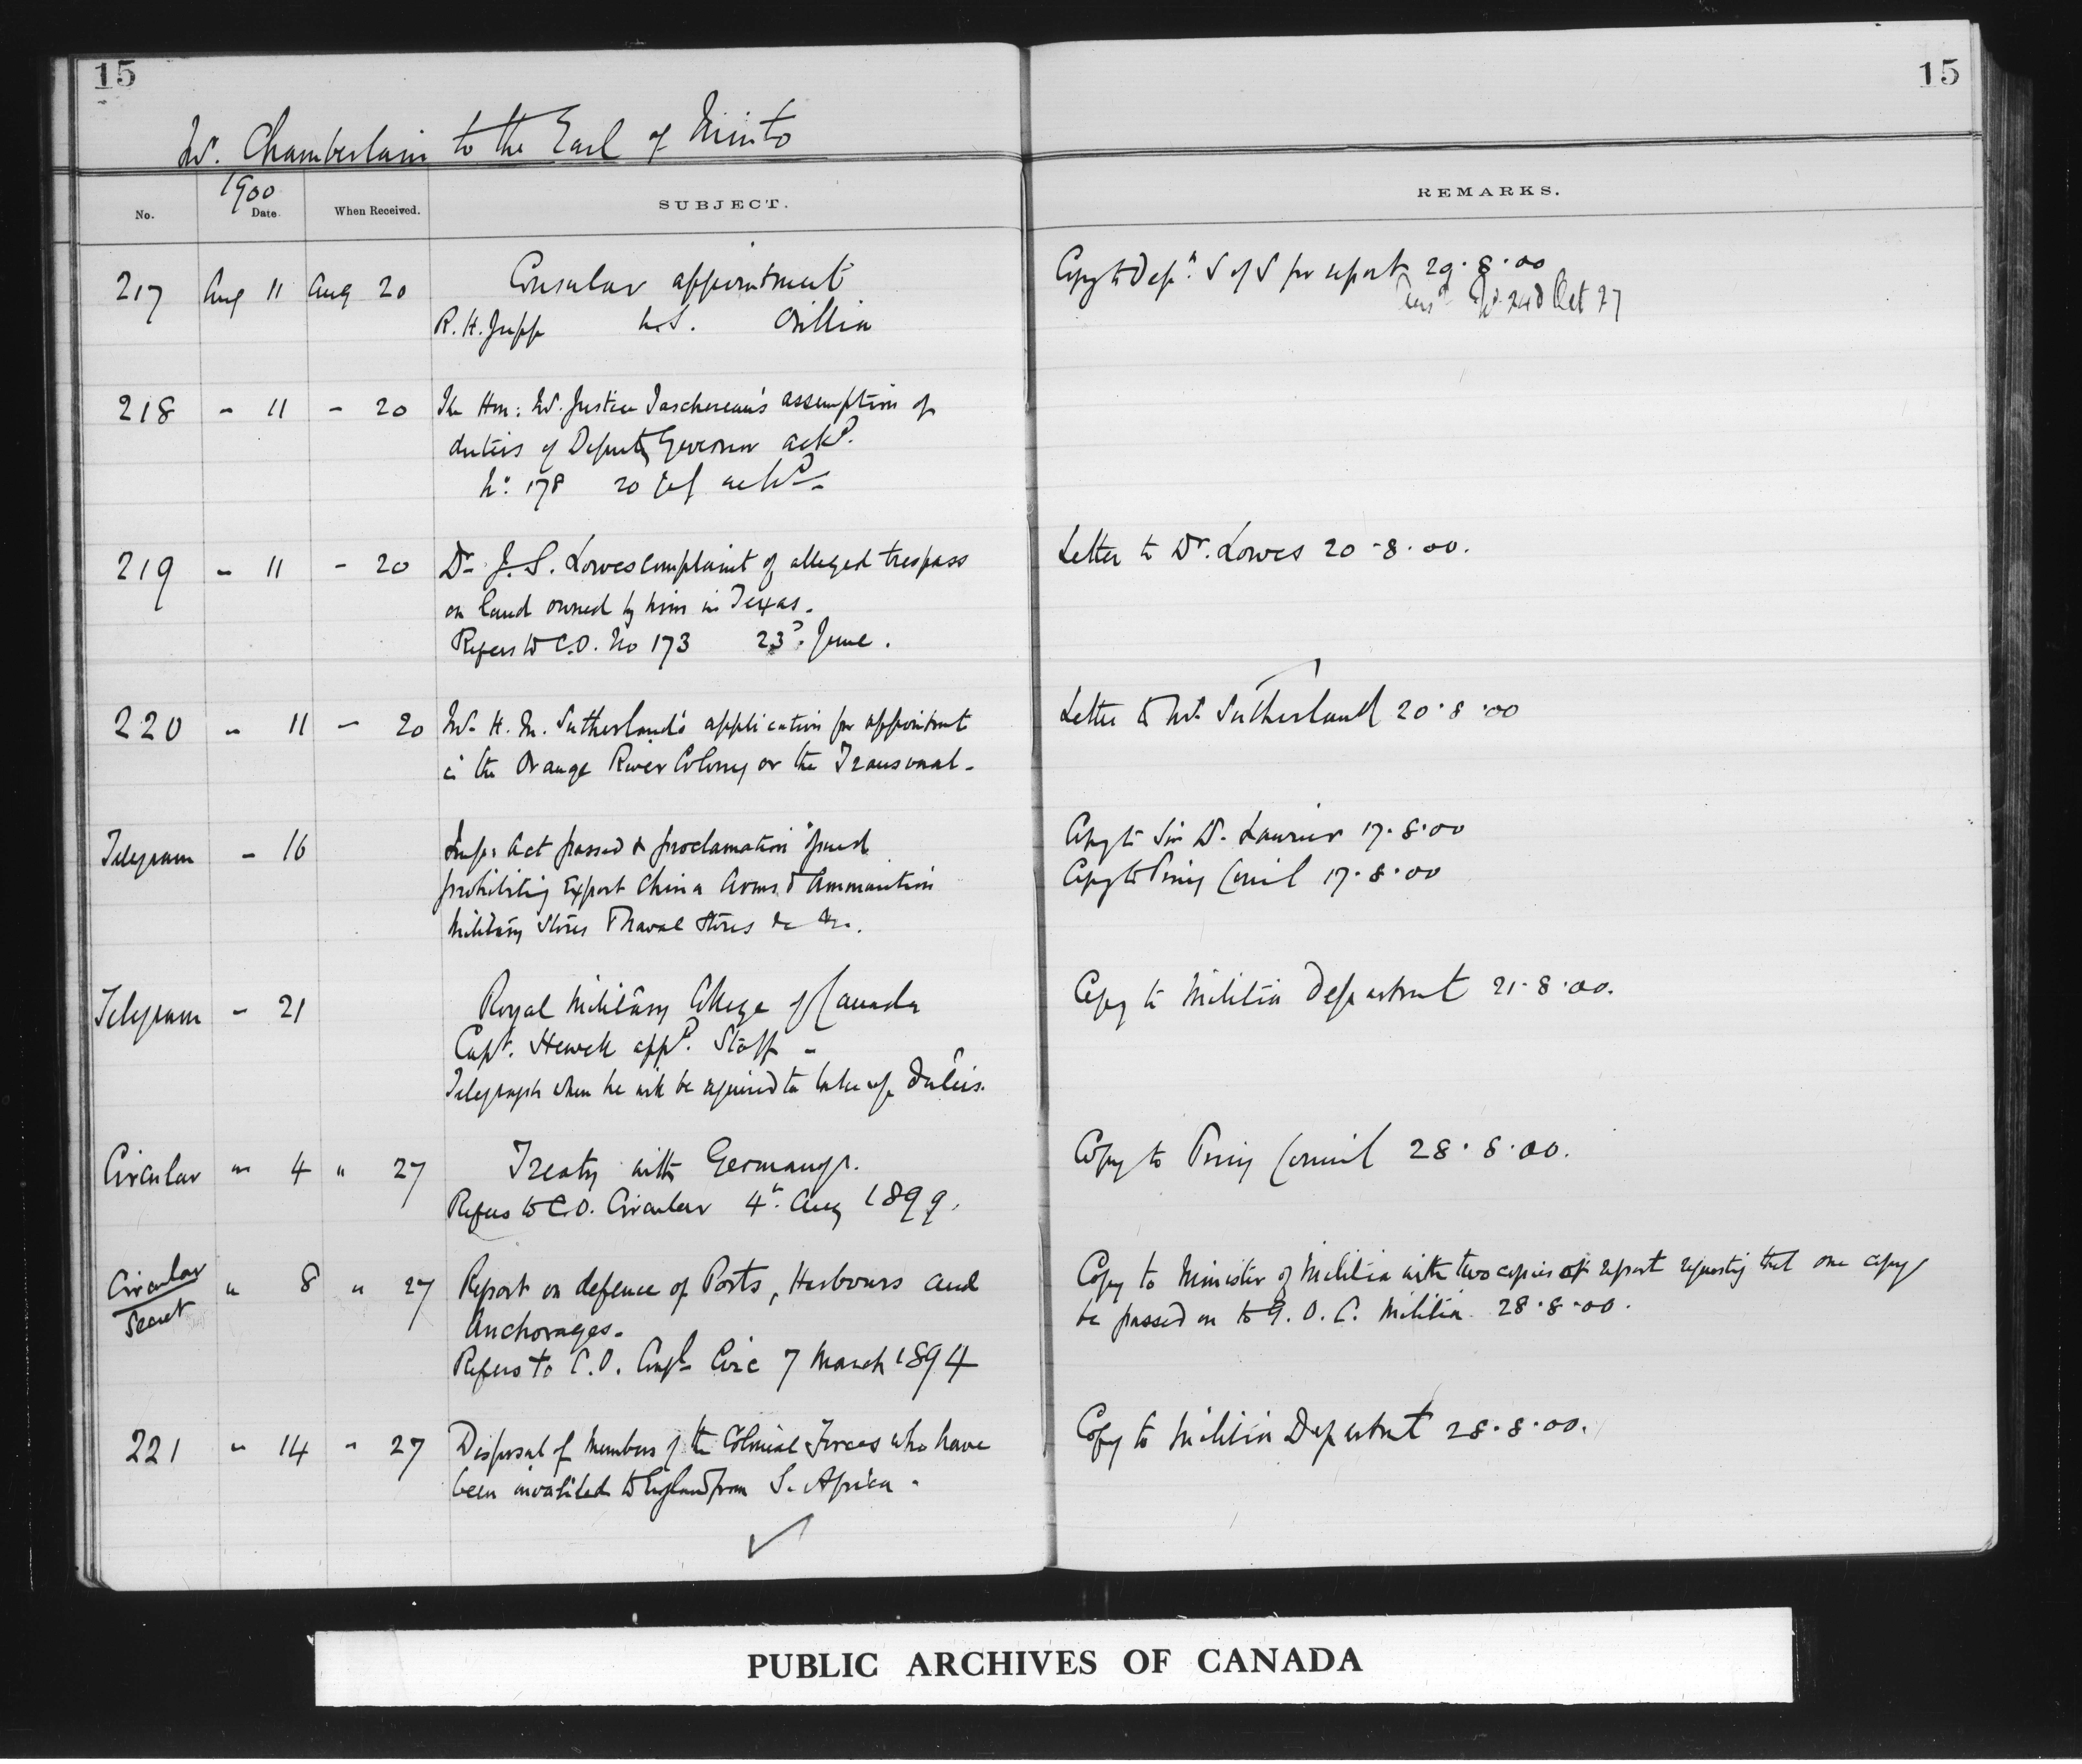 15
15
Mr. Chamberlain to the Earl of Minto
1900
No. Date. When Received. SUBJECT. REMARKS.
217 Aug 11 Aug 20 Consular appointment
R. H. Jupp U.S. Orillia
Copy to Dep. S of S for report 29.8.00
Oct 27
218 - 11 - 20 The Hon: Mr. Justice Taschereau's assumption of
duties of Deputy Governor ackd.
No: 178 20 ackd -
219 - 11 - 20 Dr. J. S. Lowes complaint of alleged trespass
on land owned by him in Texas.
Refers to C.O. No 173 23d. June.
Letter to Dr. Lowes 20-8.00.
220 - 11 - 20 Mr. H. M. Sutherland's application for appointment
in the Orange River Colony or the Transvaal.
Letter to Mr. Sutherland 20.8.00
Telegram - 16 Imp: Act passed & proclamation issued
prohibiting Export China Arms & Ammunition
Military Stores & Naval Stores &c &c.
Copy to Sir W. Laurier 17.8.00
Copy to Privy Council 17.8.00
Telegram - 21 Royal Military College of Canada
Capt. appd. Staff -
Telegraph when he will be required to take up duties.
Copy to Militia Department 21.8.00.
Circular " 4 " 27 Treaty with Germany.
Refers to C.O. Circular 4th. Aug 1899.
Copy to Privy Council 28.8.00.
Circular
Secret " 8 " 27 Report on defence of Ports, Harbours and
Anchorages.
Refers to C.O. Circ 7 March 1894
Copy to Minister of Militia with two copies of report requesting that one copy
be passed on to G.O.C. Militia 28.8.00.
221 " 14 - 27 Disposal of Members of the Colonial Forces who have
been invalided to England from S. Africa.
Copy to Militia Department 28.8.00.
PUBLIC ARCHIVES OF CANADA